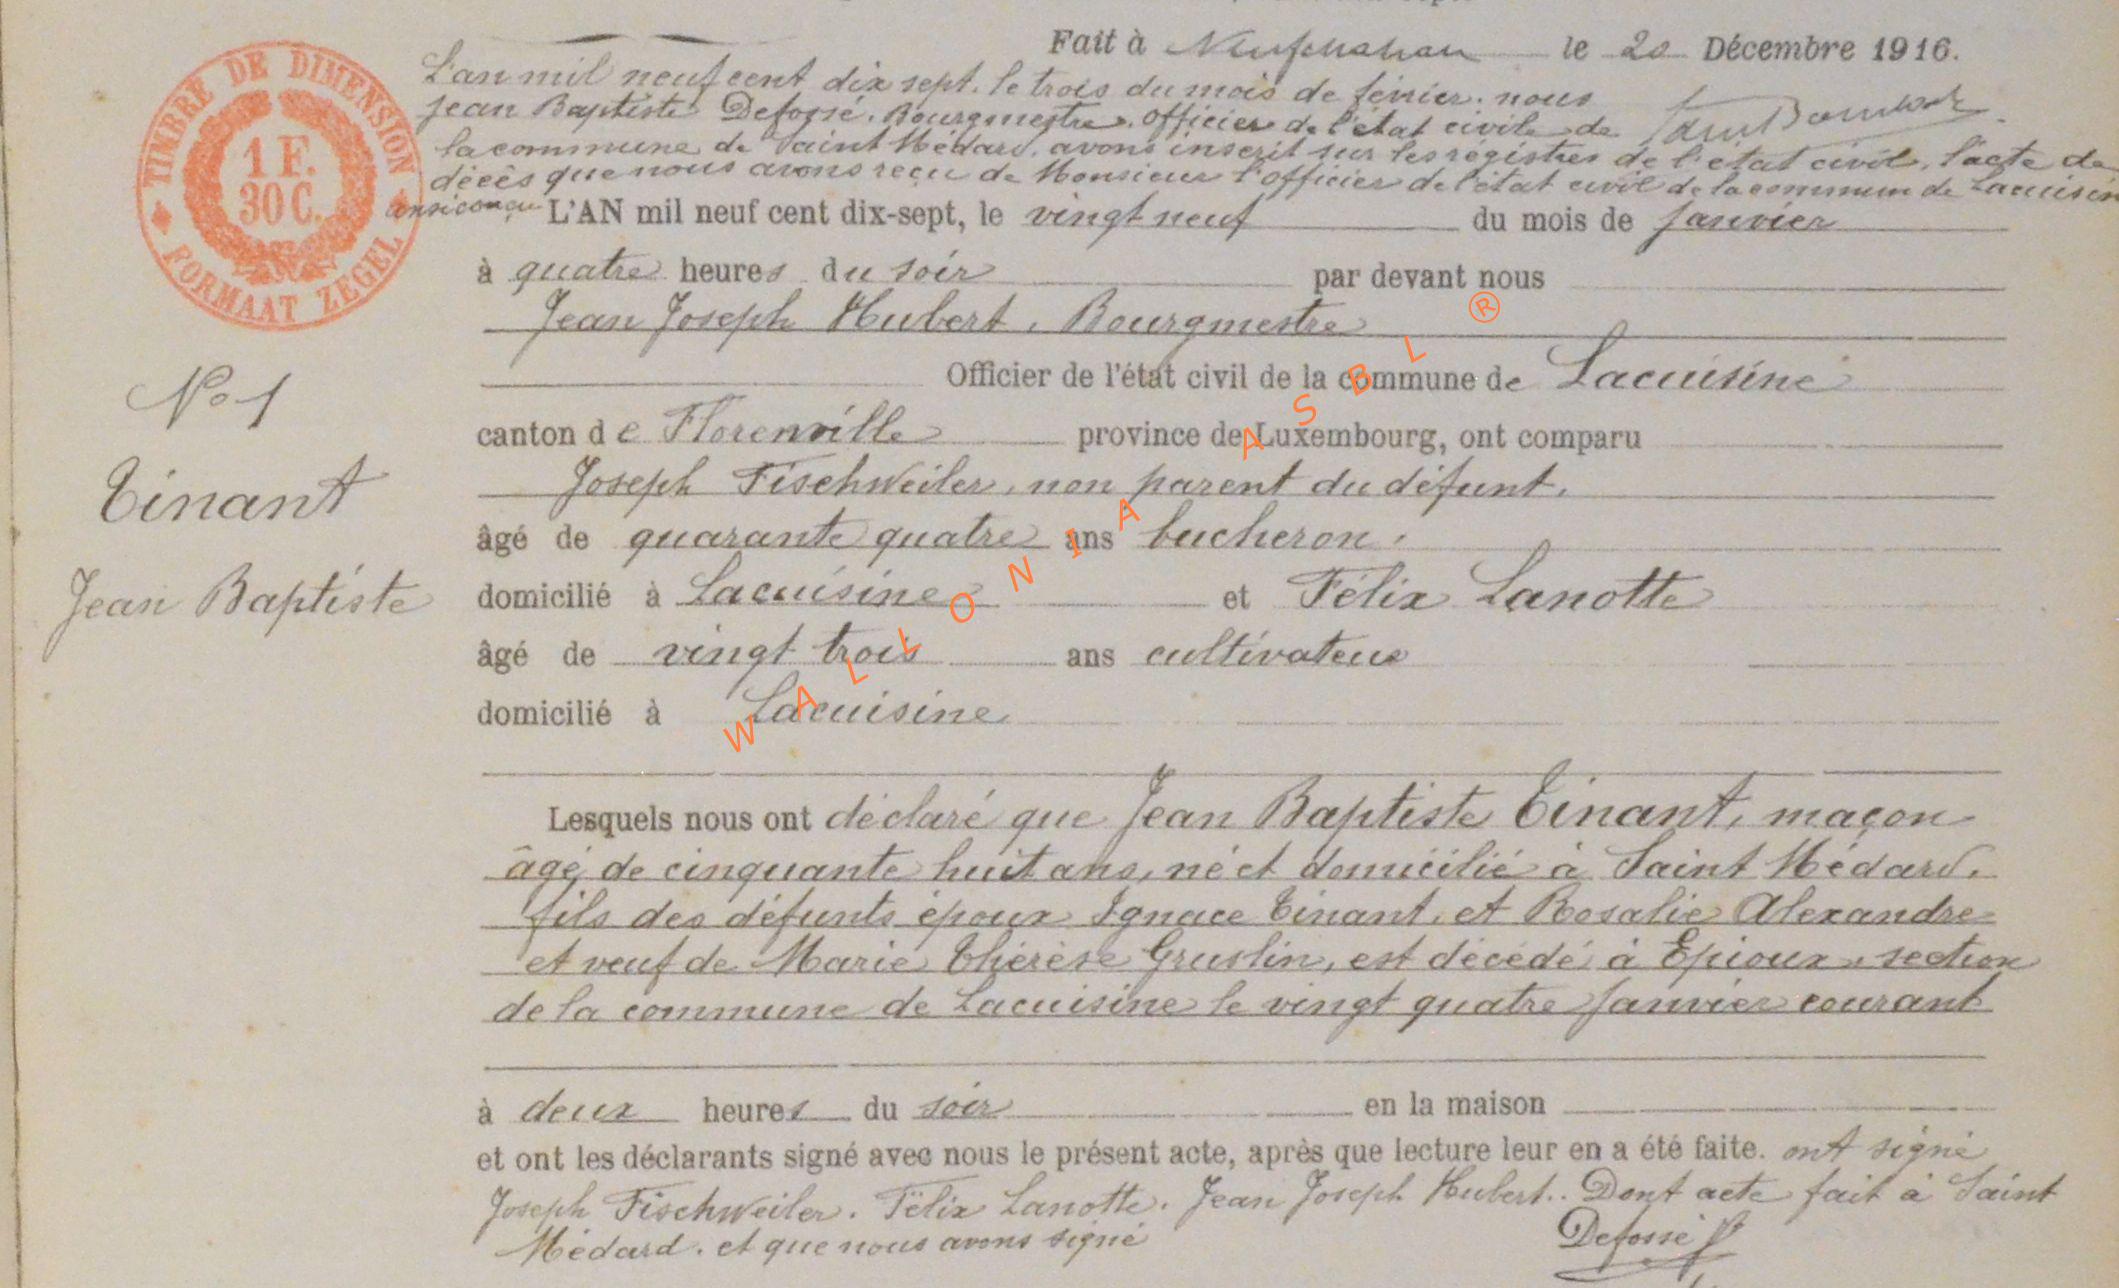 Fait à Neufchateau le 20 Décembre 1916.
L'an mil neuf cent dix sept. le trois du mois de février. nous
Jean Baptiste Defossé. Bourgmestre. officier de l'état civile de
la commune de Saint Médard. avons inscrit sur les régistres de l'état civil, l'acte de
décès que nous avons reçu de Monsieur l'officier de l'état civil de la commune de Lacuisine
ainsi conçu L'AN mil neuf cent dix-sept, le vingt neuf du mois de Janvier
à quatre heures du soir par devant nous
Jean Joseph Hubert, Bourgmestre
Officier de l'état civil de la commune de Lacuisine
canton de Florenville province de Luxembourg, ont comparu
Joseph Fischweiler, non parent du défunt,
âgé de quarante quatre ans bucheron,
domicilié à Lacuisine et Félix Lanotte
âgé de vingt trois ans cultivateur
domicilié à Lacuisine
Lesquels nous ont déclaré que Jean Baptiste Tinant, maçon
âgé de cinquante huit ans, né et domicilié à Saint Médard,
fils des défunts époux Ignace Tinant, et Rosalie Alexandre
et veuf de Marie Thérèse Gruslin, est décédé à Epioux, section
de la commune de Lacuisine le vingt quatre Janvier courant
à deux heures du soir en la maison
et ont les déclarants signé avec nous le présent acte, après que lecture leur en a été faite. ont signé
Joseph Fischweiler. Félix Lanotte. Jean Joseph Hubert.. Dont acte fait à Saint
Médard. et que nous avons signé
Defossé
TIMBRE DE DIMENSION
1 F.
30 C.
FORMAAT ZEGEL
No 1
Tinant
Jean Baptiste
WALLONIA ASBL ®